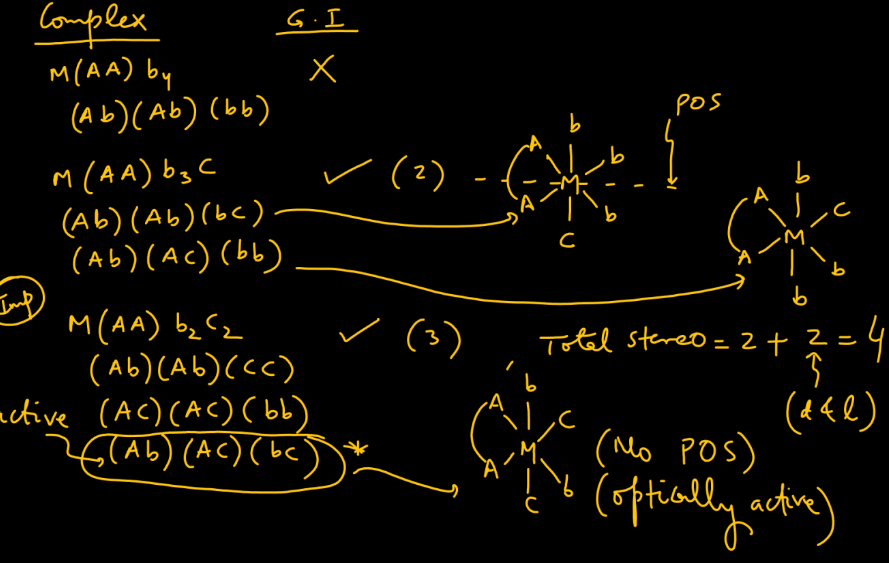 Complex G.I
M(AA) b4 X
(Ab)(Ab)(bb)
M(AA) b3C ✓ (2)
(Ab)(Ab)(bC)
(Ab)(AC)(bb)
POS
A b b
M
A b
C
A b C
M
A b
b
Imp
M(AA) b2C2 ✓ (3)
(Ab)(Ab)(CC)
(AC)(AC)(bb)
active (Ab)(AC)(bC) *
Total stereo = 2 + 2 = 4
(d & l)
A b C
M
A b
C
(No POS)
(optically active)